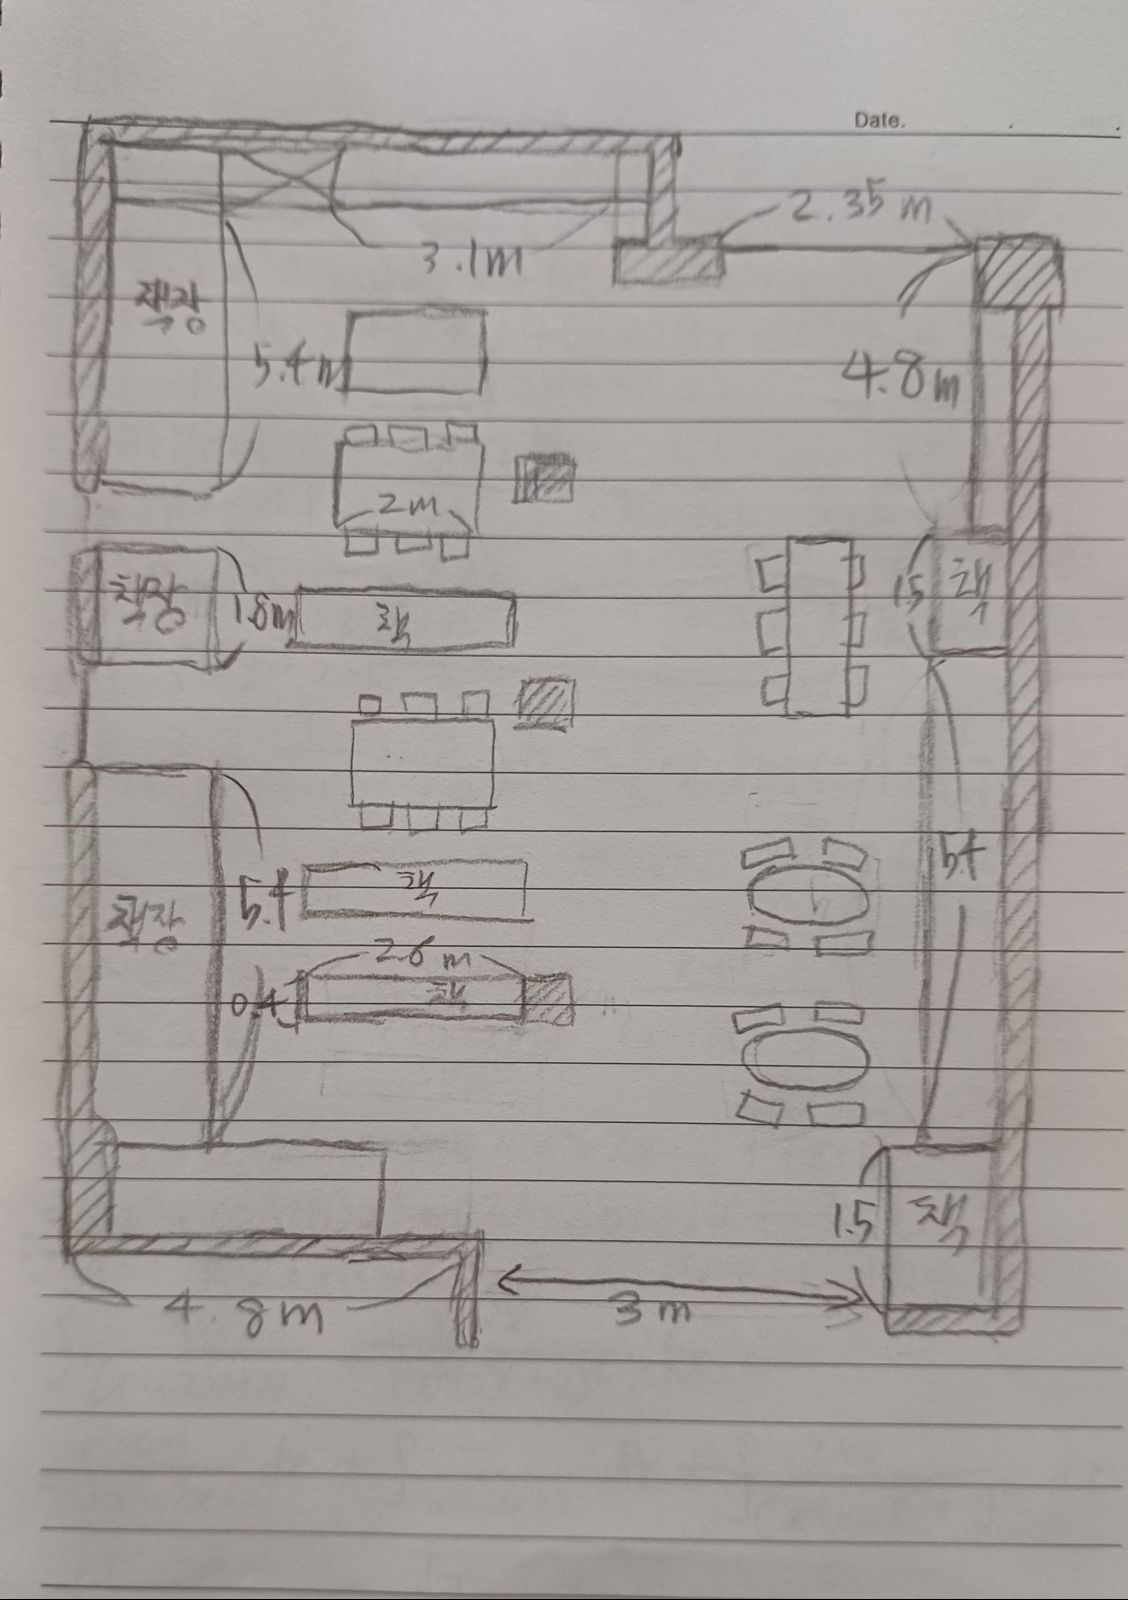 Date.
2.35 m
3.1m
책장
5.4m
4.8m
2m
책장
1.8m
책
1.5
책
책장
5.4
책
5.4
2.6 m
0.4
책
1.5
책
4.8m
3m